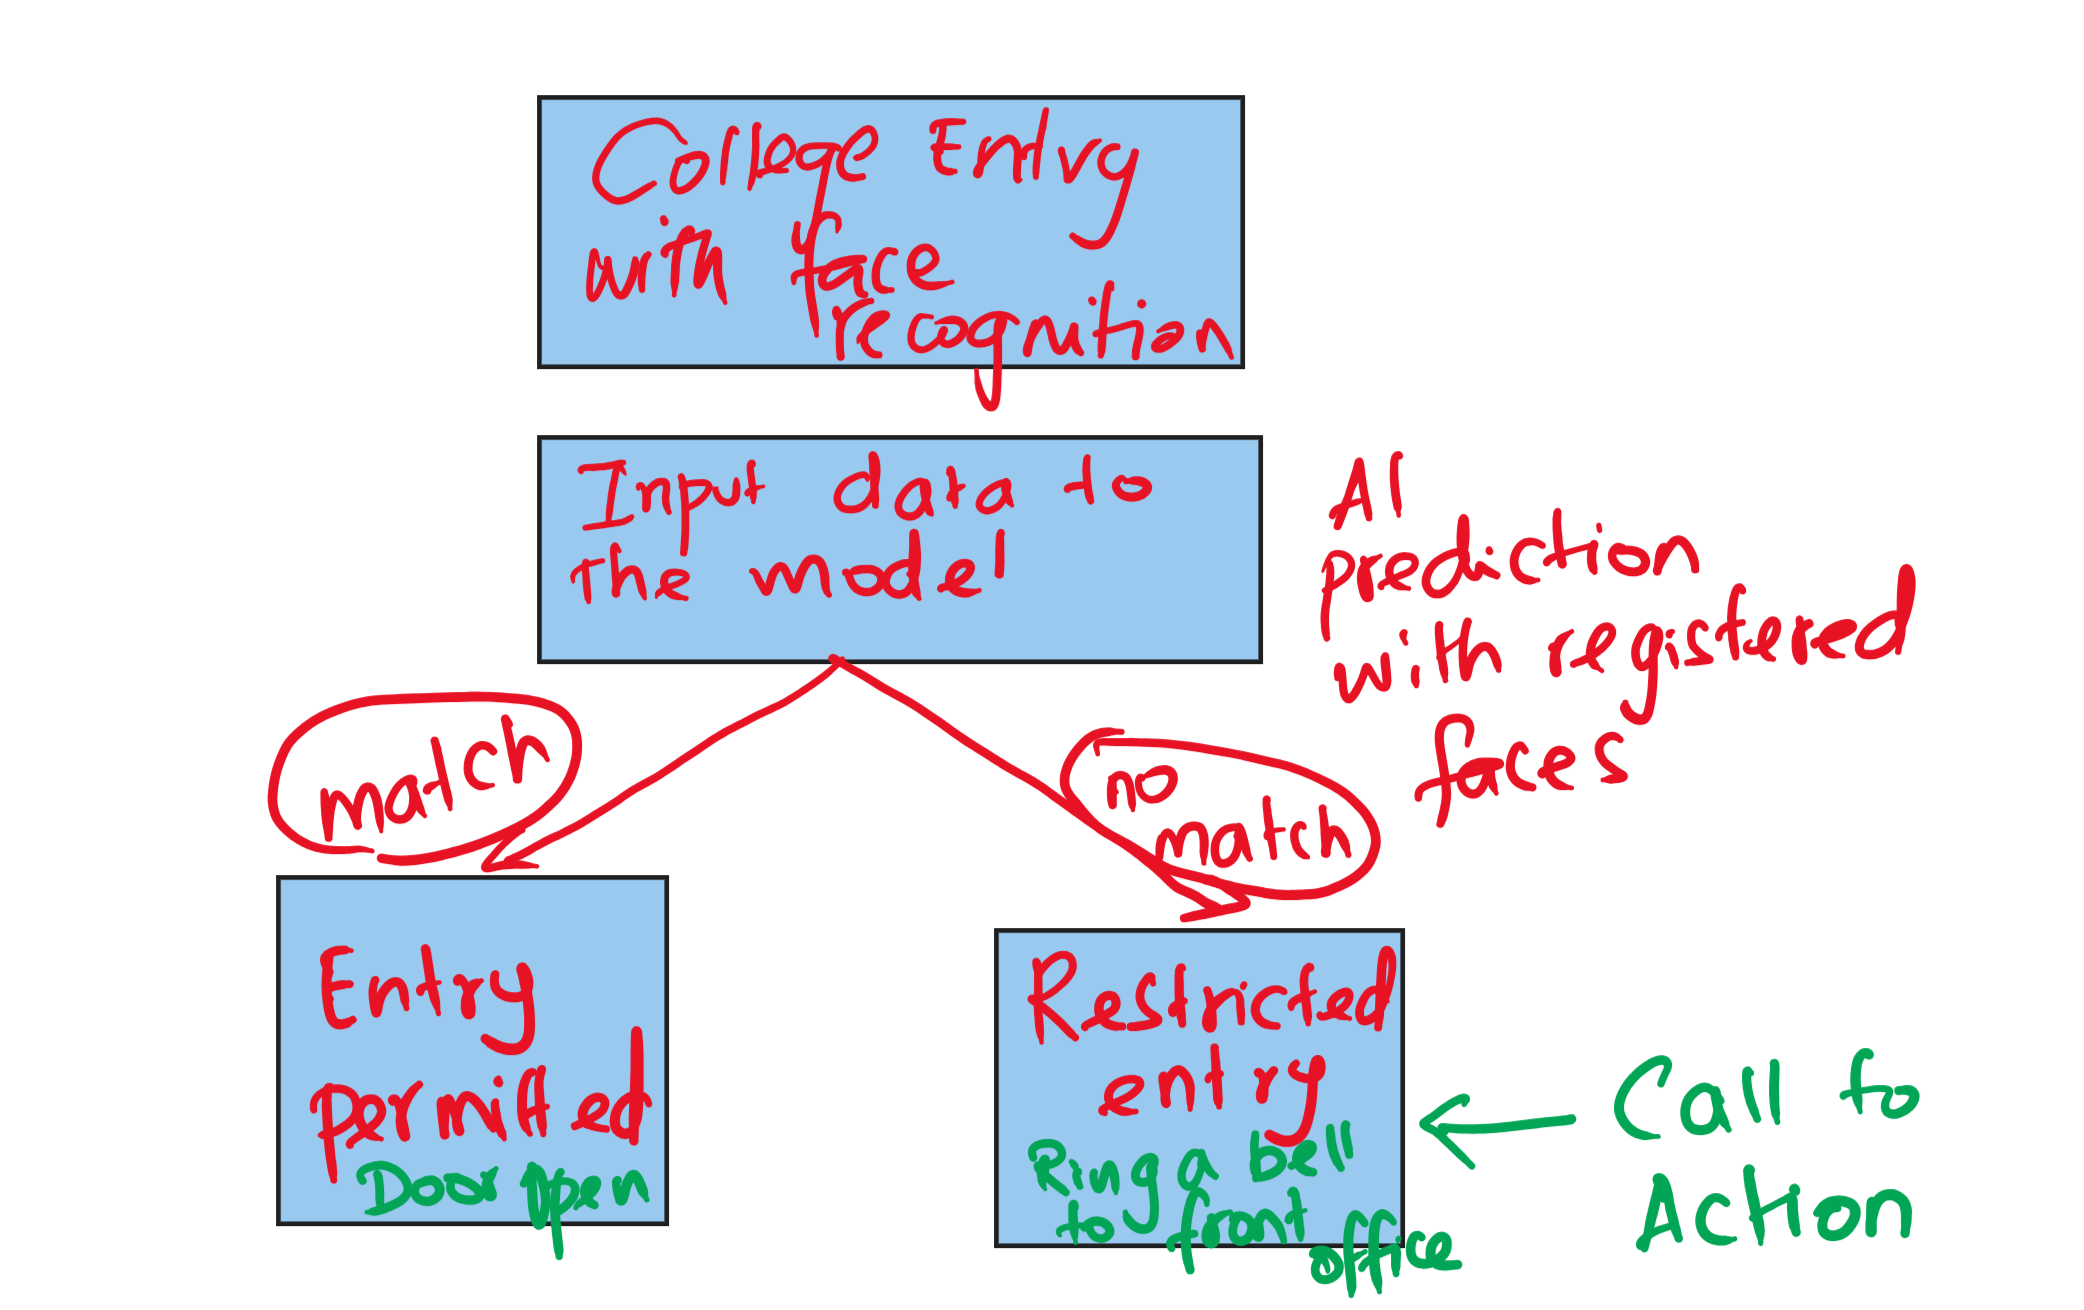 College Entry
with face
recognition
Input data to
the model
AI
prediction
with registered
faces
match
no
match
Entry
permitted
Door open
Restricted
entry
Ring a bell
to front
office
Call to
Action